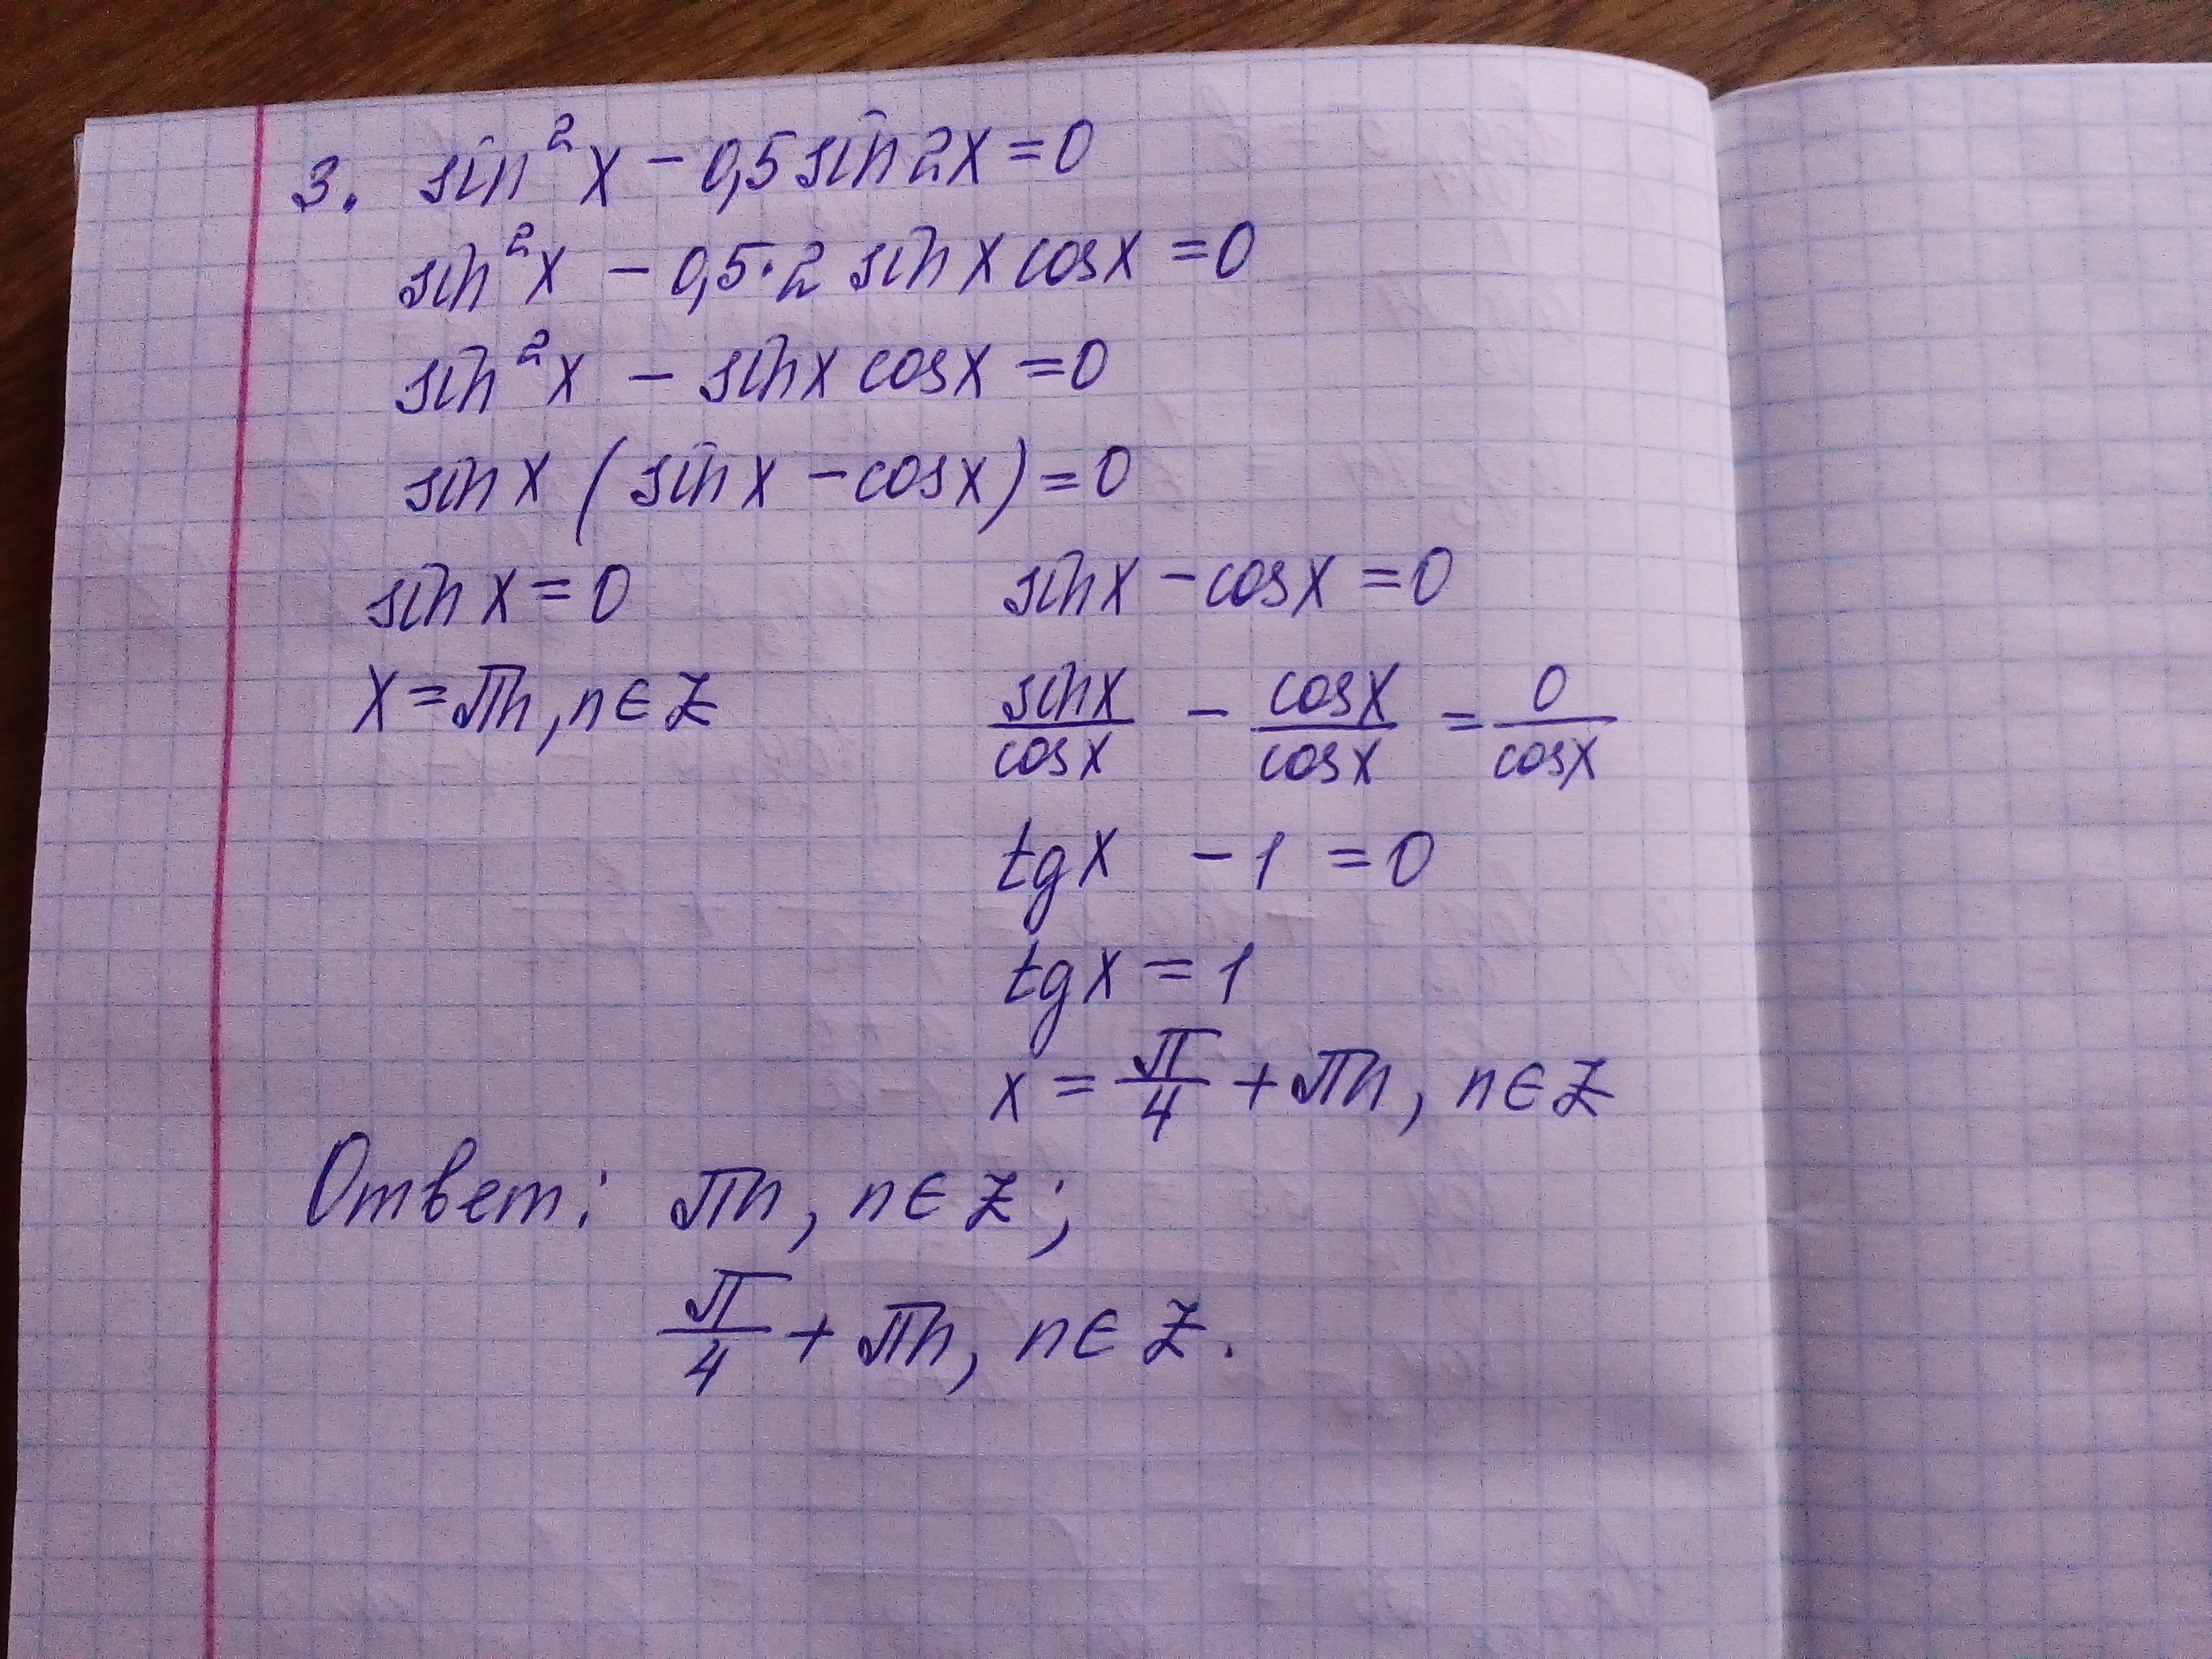 3. sin²x - 0,5 sin2x = 0
sin²x - 0,5·2 sinx cosx = 0
sin²x - sinx cosx = 0
sinx (sinx - cosx) = 0
sinx = 0
x = πn, n∈Z
sinx - cosx = 0
sinx/cosx - cosx/cosx = 0/cosx
tgx - 1 = 0
tgx = 1
x = π/4 + πn, n∈Z
Ответ: πn, n∈Z;
π/4 + πn, n∈Z.